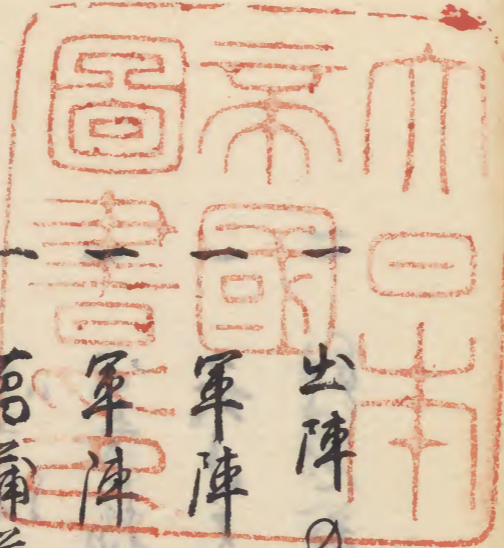 大日本
帝國
圖書印
一 出陣の
一 軍陣
一 軍陣
一 菖蒲